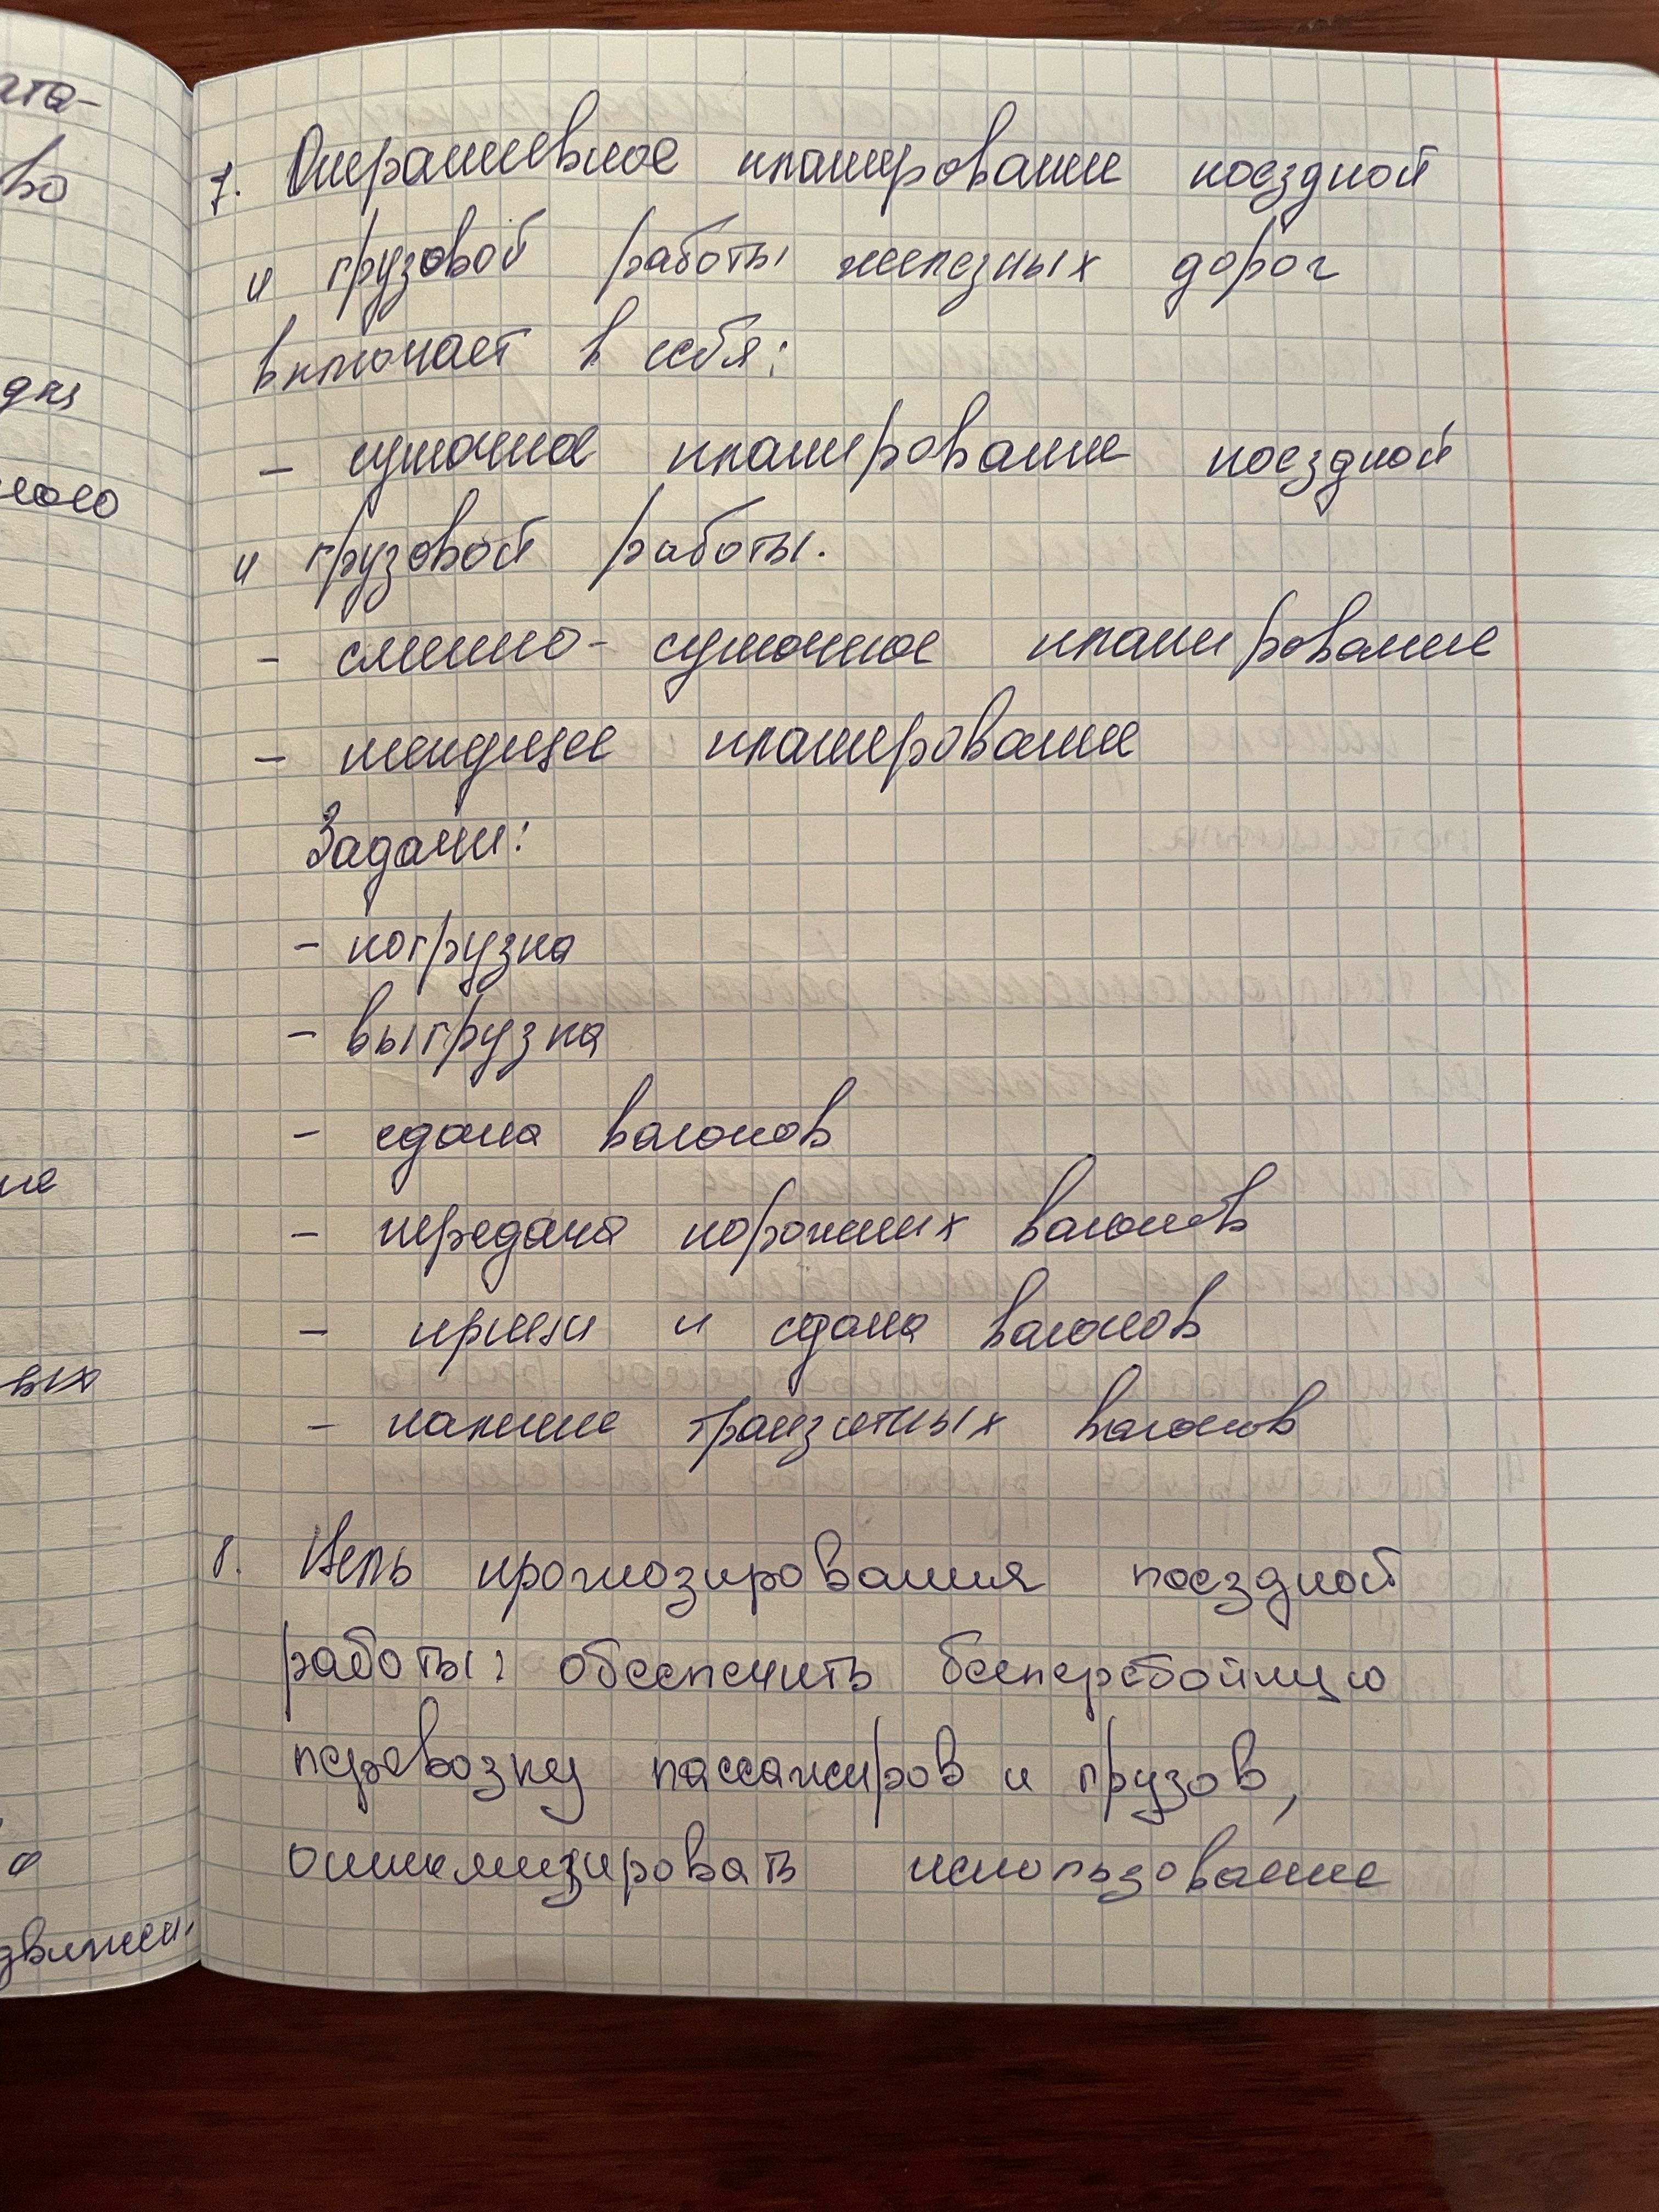 7. Оперативное планирование поездной
и грузовой работы железных дорог
включает в себя:
- суточное планирование поездной
и грузовой работы.
- сменно-суточное планирование
- текущее планирование
Задачи:
- погрузка
- выгрузка
- сдача вагонов
- передача порожних вагонов
- прием и сдача вагонов
- наличие транзитных вагонов
8. Цель прогнозирования поездной
работы: обеспечить бесперебойную
перевозку пассажиров и грузов,
оптимизировать использование